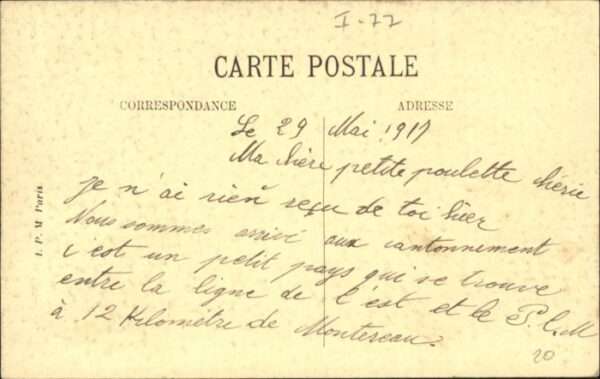 I-77
CARTE POSTALE
CORRESPONDANCE ADRESSE
Le 29 Mai 1917
Ma chère petite poulette chérie
Je n'ai rien reçu de toi hier
Nous sommes arrivé aux cantonnement
c'est un petit pays qui se trouve
entre la ligne de l'est et le P.L.M
à 12 Kilomètre de Montereau.
20
I. P. M Paris